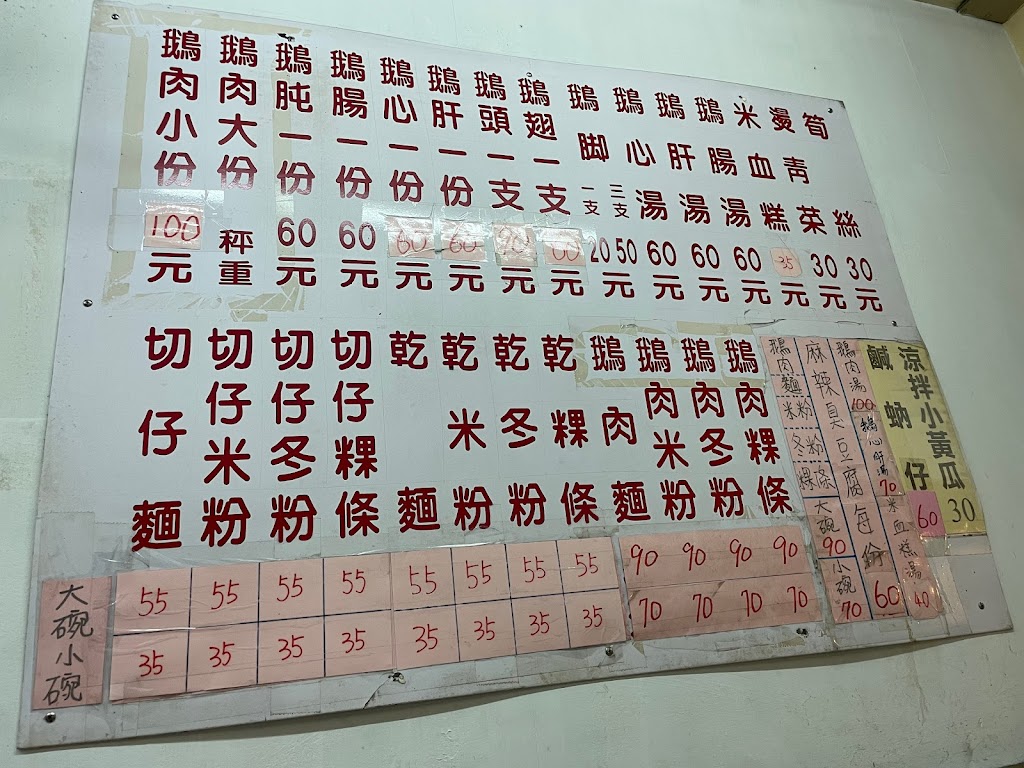 鵝肉小份 100元
鵝肉大份 秤重
鵝肫一份 60元
鵝腸一份 60元
鵝心一份 60元
鵝肝一份 60元
鵝頭一支 90元
鵝翅一支 60元
鵝脚 一支 20 三支 50元
鵝心湯 60元
鵝肝湯 60元
鵝腸湯 60元
米血糕 35元
燙青菜 30元
筍絲 30元
大碗 小碗
切仔麵 55 35
切仔米粉 55 35
切仔冬粉 55 35
切仔粿條 55 35
乾麵 55 35
乾米粉 55 35
乾冬粉 55 35
乾粿條 55 35
鵝肉麵 90 70
鵝肉米粉 90 70
鵝肉冬粉 90 70
鵝肉粿條 90 70
鵝肉麵 米粉 冬粉 粿條
大碗 90 小碗 70
麻辣臭豆腐 每份 60
鵝肉湯 100
鵝心肝湯 70
米血糕湯 40
鹹蚋仔 60
涼拌小黃瓜 30